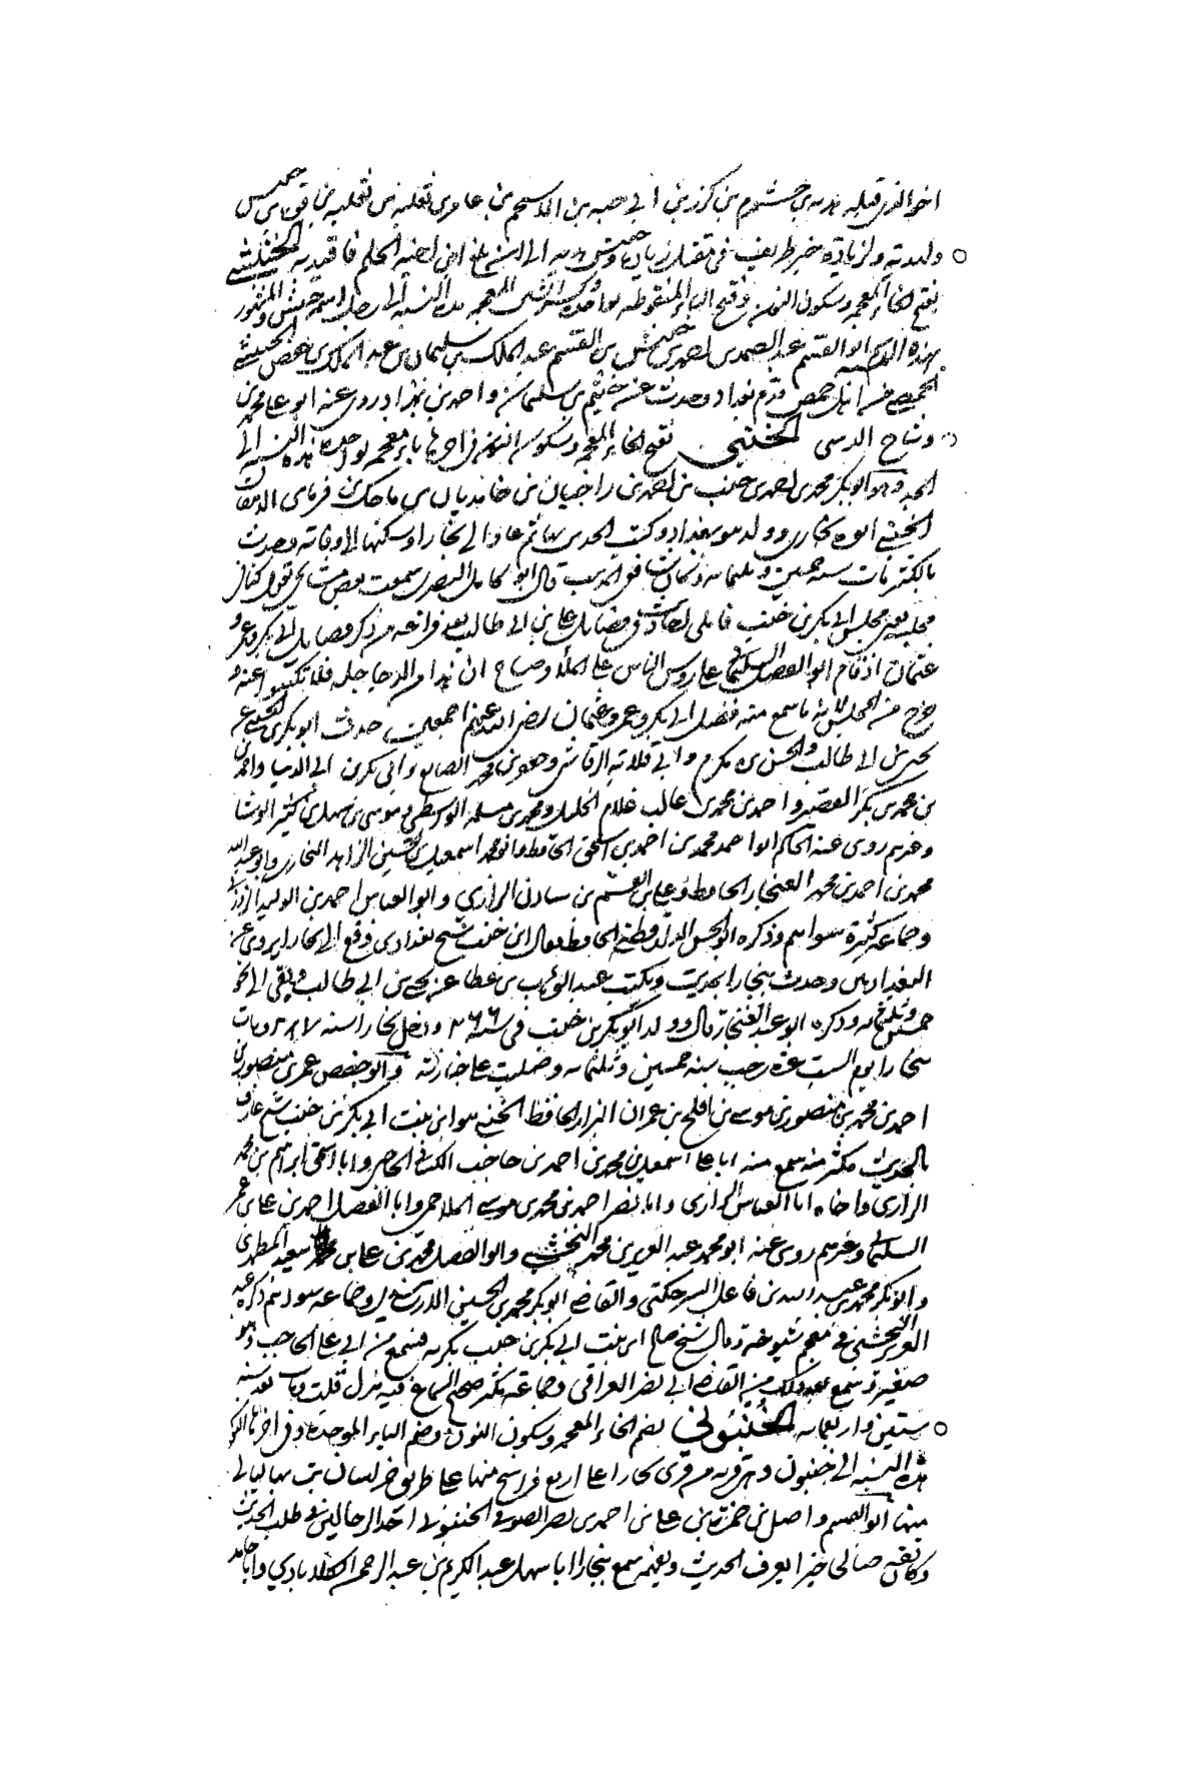 اخو الذي قبله بن كرز بن ابي حبه بن الاسحم بن عامر بن ثعلبه بن ثعلبه بن
ولديه ولزيادة خبر طريف في مقتل زيادة الى ان بلغ ابن اخيه الحلم فاقيد به الخنبشي
بفتح الخاء المعجمه وسكون النون وفتح الباء المنقوطه بواحده الشين المعجمه هذه النسبه الى رجل اسمه خنبش والمشهور
بهذه النسبه ابو القسم عبد الصمد بن احمد بن خنبش بن القسم بن عبد الملك بن سليمان بن عبد الملك بن حفص الخنبشي
الحمصي من اهل حمص قدم بغداد وحدث عن خيثمه بن سليمان واحمد بن بهزاد روى عنه ابو علي محمد بن
وشاح الخنبي بفتح الخاء المعجمه وسكون النون وفي اخرها باء معجمه بواحده هذه النسبه الى
الجد وهو ابو بكر محمد بن احمد بن خنب بن احمد بن راجيان بن حامديان بن ماجك بن فرماي الدهقان
الخنبي ابوه بخاري وولد هو ببغداد وكتب الحديث بها ثم عاد الى بخارا وسكنها الى وفاته وحدث
بالكثير مات سنه خمسين وثلثمايه وكان شافعي المذهب قال ابو كامل البصري سمعت بعض مشايخي يقول كنا في
مجلس ابي بكر بن خنب فاملى احاديث في فضايل علي بن ابي طالب بعد فراغه من ذكر فضايل ابي بكر وعمر و
عثمان اذ قام ابو الفضل السليماني على روس الناس على الملا وصاح ان هذا من الدجاجله فلا تكتبوا عنه و
خرج من المجلس لانه ما سمع منه فضل ابي بكر وعمر وعثمان رضي الله عنهم اجمعين حدث ابو بكر الخنبي عن
يحيى بن ابي طالب والحسن بن مكرم وابي قلابه الرقاشي وجعفر بن محمد الصايغ وابي بكر بن ابي الدنيا واحمد
بن محمد بن بكر القصير واحمد بن محمد بن غالب غلام الخليل ومحمد بن مسلمه الواسطي وموسى بن سهل بن كثير الوشا
وغيرهم روى عنه الحاكم ابو احمد محمد بن احمد بن اسحق الحافظ وابو محمد اسمعيل بن الحسين الزاهد البخاري وابو عبد الله
محمد بن احمد بن محمد الغنجار الحافظ وعلي بن القسم بن شاذان الرازي وابو العباس احمد بن الوليد الزوزني
وجماعه كثيرة سواهم وذكره ابو الحسن الدارقطني الحافظ فقال ابن خنب شيخ بغدادي وقع الى بخارا يروي عن
البغداديين وحدث ببخارا بحديث ويكتب عبد الوهاب بن عطا عن يحيى بن ابي طالب وبقي الى نحو
خمسين وثلثمايه وذكره ابو عبد الله الغنجار قال وولد ابو بكر بن خنب في سنه ٢٦٦ ودخل بخارا سنه ٢٨٧ ومات
ببخارا يوم السبت غره رجب سنه خمسين وثلثمايه وصليت على جنازته وابو حفص عمر بن منصور بن
احمد بن محمد بن منصور بن موسى بن افلح بن عمران البزار الحافظ الخنبي هو ابن بنت ابي بكر بن خنب شيخ عارف
بالحديث مكثر منه سمع منه ابا علي اسمعيل بن محمد بن احمد بن حاجب الكشاني الحاجي وابا اسحق ابراهيم بن محمد
الرازي واخاه ابا العباس الرازي وابا نصر احمد بن محمد بن موسى الملاحمي وابا الفضل احمد بن علي بن عمر
السليماني وغيرهم روى عنه ابو محمد عبد العزيز بن محمد النخشبي وابو الفضل محمد بن علي بن سعيد المطهري
وابو بكر محمد بن عبيد الله بن فاعل السرحكتي والقاضي ابو بكر محمد بن الحسين وجماعه سواهم ذكره عبد
العزيز النخشبي في معجم شيوخه وقال شيخ صالح ابن بنت ابي بكر بن خنب بكر به فسمع من ابي علي الحاجب وهو
صغير ثم سمع بعد ذلك من القاضي ابي نصر العراقي وجماعه مكثر صحيح السماع فيه هزل قلت ومات بعد سنه
ستين واربعمايه الخنبوني بضم الخاء المعجمه وسكون النون وضم الباء الموحده وفي اخرها النون
هذه النسبه الى خنبون وهي قريه من قرى بخارا على اربع فراسخ منها على طريق خراسان بت بها ليالي
منها ابو القسم واصل بن حمزة بن علي بن احمد بن نصر الصوفي الخنبوني احد الرحالين في طلب الحديث
وكان ثقه صالحا خيرا يعرف الحديث ويفهم سمع ببخارا ابا سهل عبد الكريم بن عبد الرحمن الكلاباذي وابا حامد